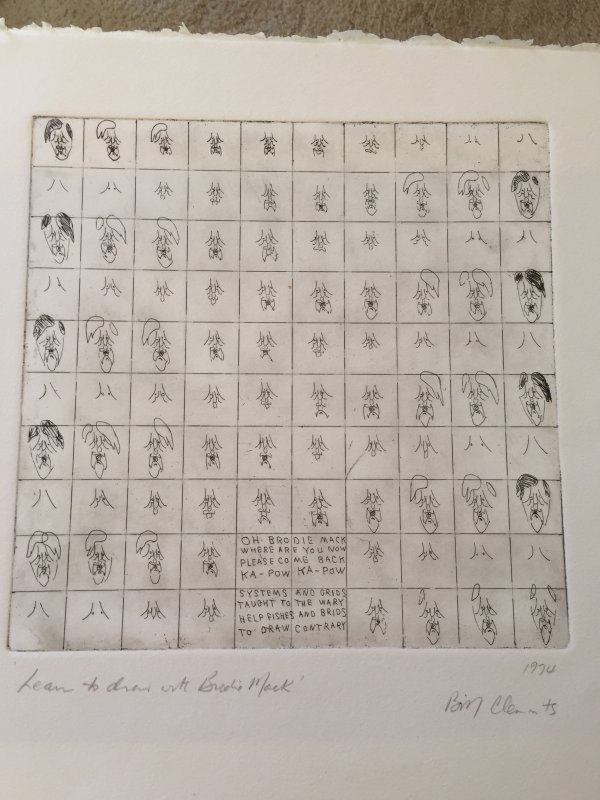 OH BRODIE MACK
WHERE ARE YOU NOW
PLEASE COME BACK
KA-POW KA-POW
SYSTEMS AND GRIDS
TAUGHT TO THE WARY
HELP FISHES AND BRIDS
TO DRAW CONTRARY
Learn to draw with Brodie Mack'
1974
Bill Clements